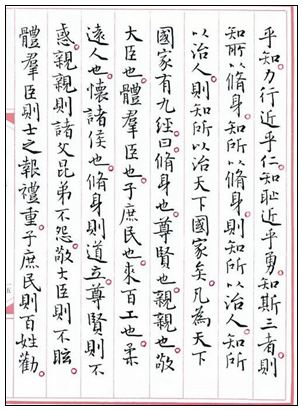 乎知。力行近乎仁。知恥近乎勇。知斯三者則
知所以脩身。知所以脩身。則知所以治人。知所
以治人。則知所以治天下國家矣。凡為天下
國家有九經。曰脩身也。尊賢也。親親也。敬
大臣也。體羣臣也。子庶民也。來百工也。柔
遠人也。懷諸侯也。脩身則道立。尊賢則不
惑。親親則諸父昆弟不怨。敬大臣則不眩。
體羣臣則士之報禮重。子庶民則百姓勸。